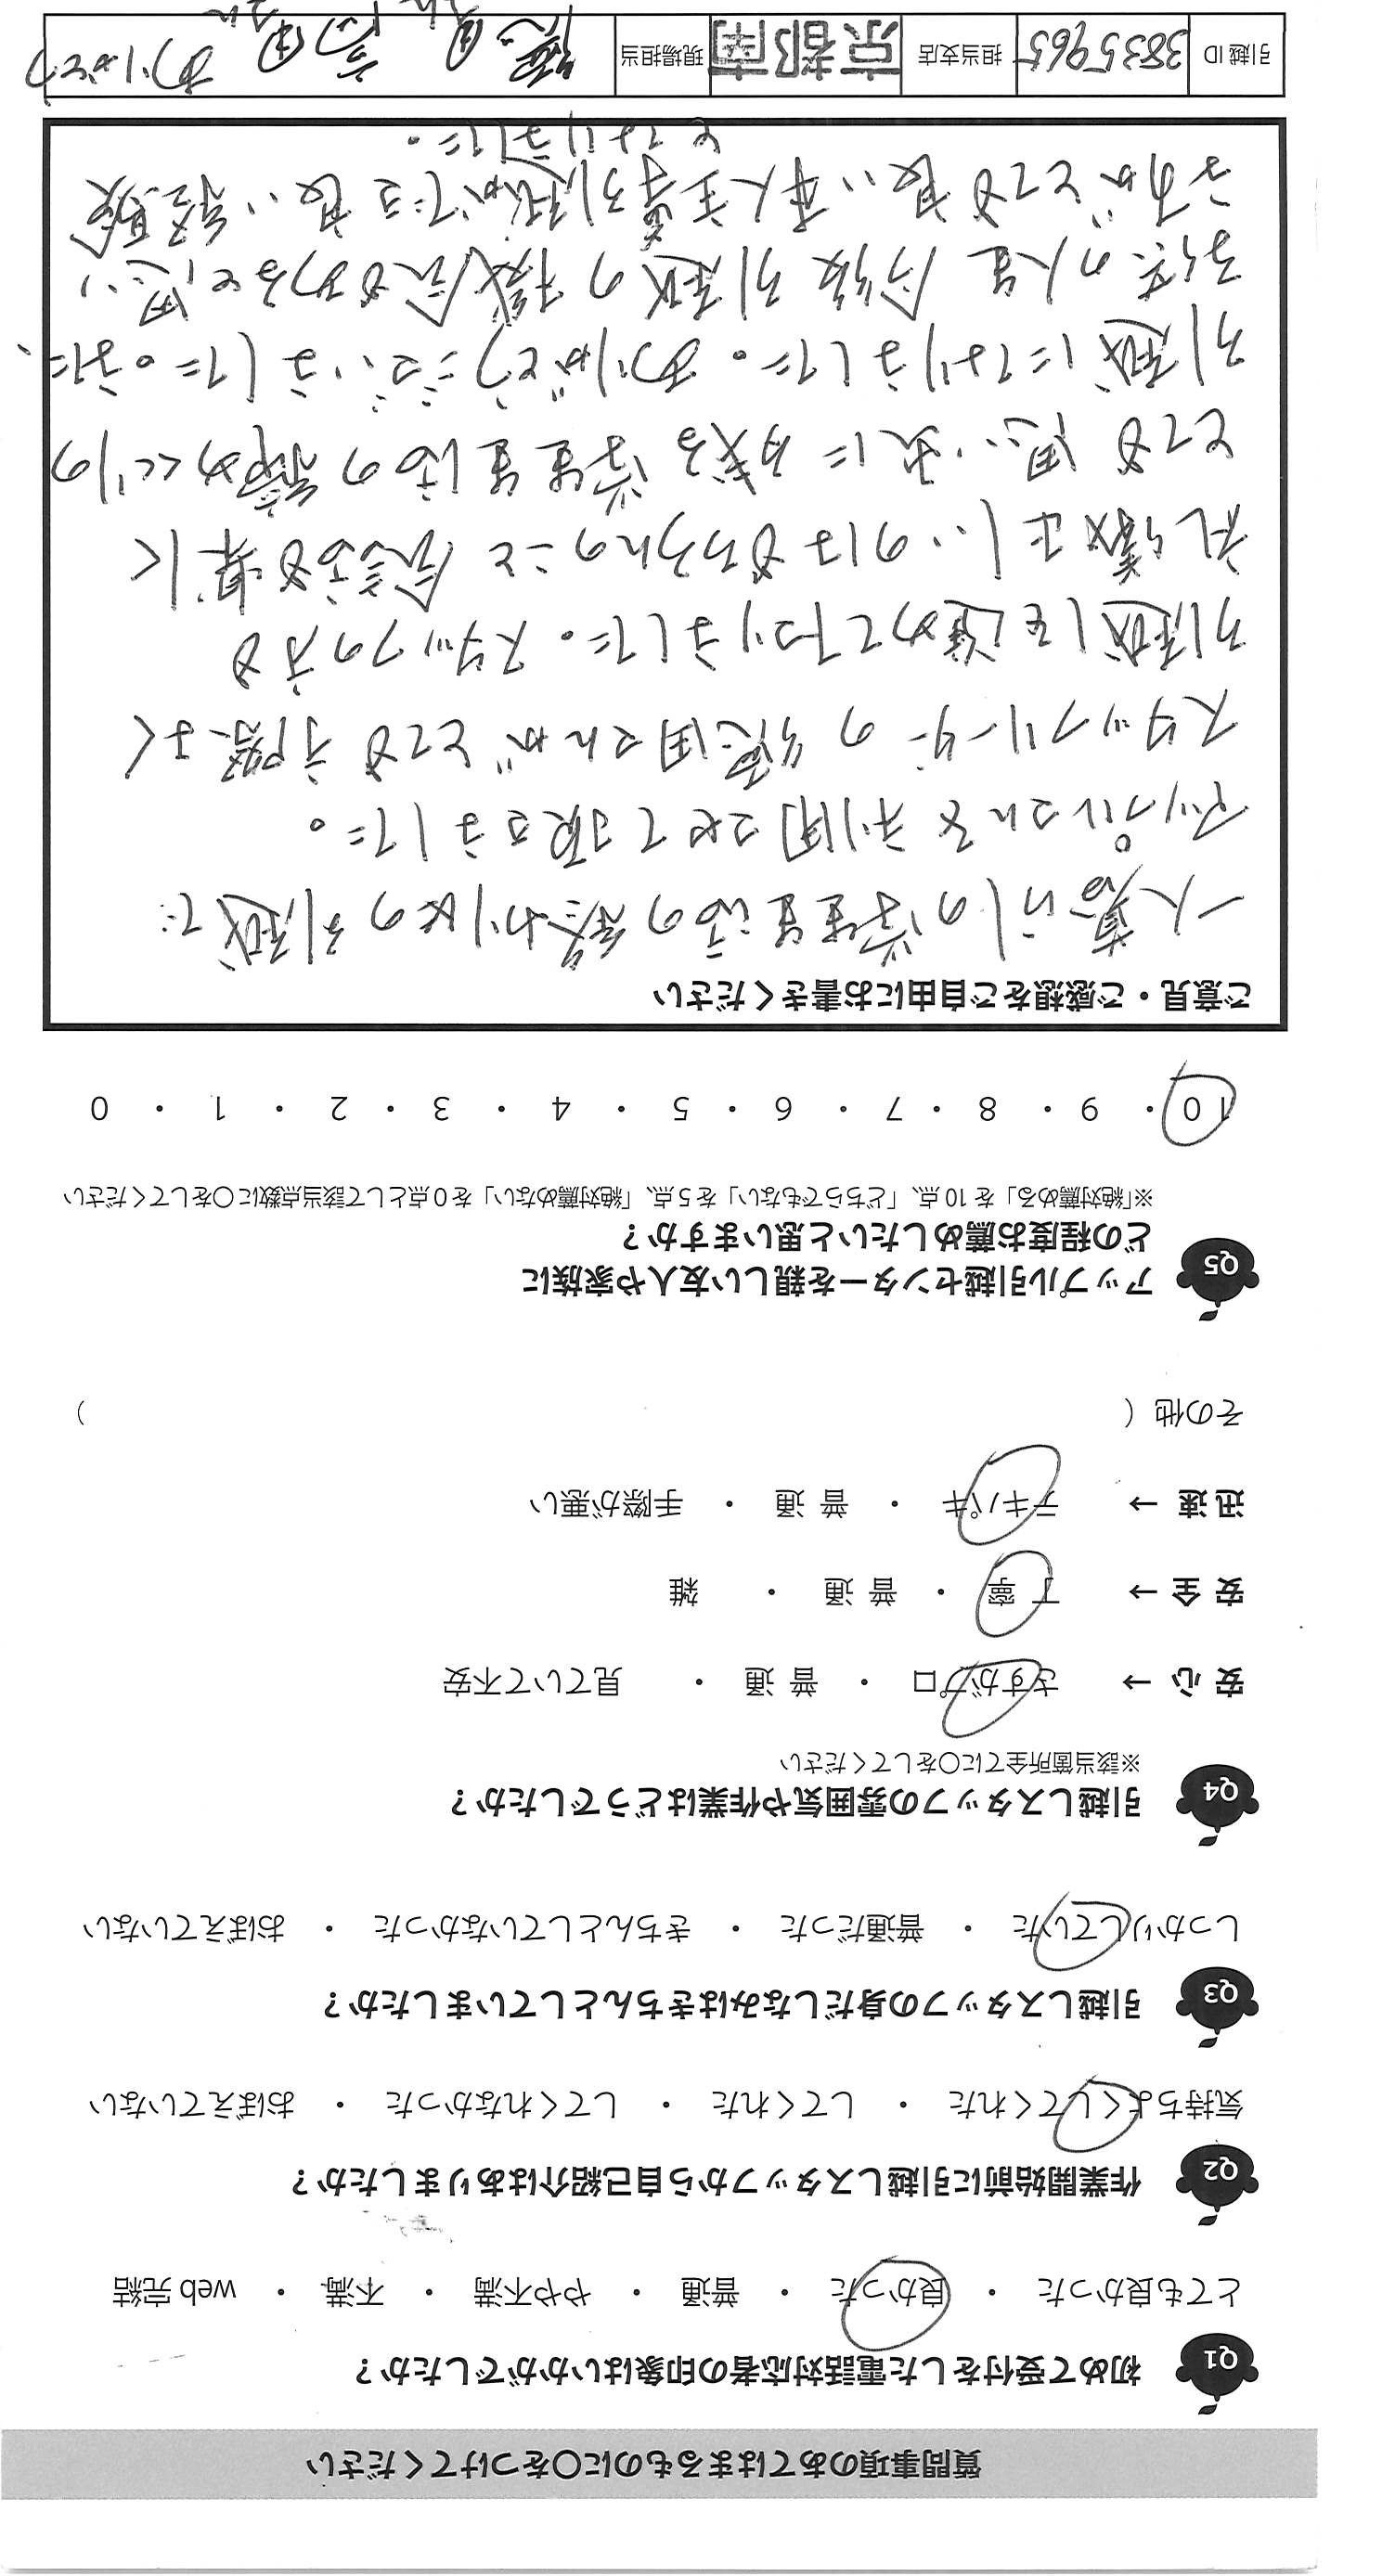 質問事項のあてはまるものに〇をつけてください
Q1 初めて受付をした電話対応者の印象はいかがでしたか？
とても良かった ・ 良かった ・ 普通 ・ やや不満 ・ 不満 ・ web 完結
Q2 作業開始前に引越しスタッフから自己紹介はありましたか？
気持ちよくしてくれた ・ してくれた ・ してくれなかった ・ おぼえていない
Q3 引越しスタッフの身だしなみはきちんとしていましたか？
しっかりしていた ・ 普通だった ・ きちんとしていなかった ・ おぼえていない
Q4 引越しスタッフの雰囲気や作業はどうでしたか？
※該当箇所全てに〇をしてください
安 心 → さすがプロ ・ 普 通 ・ 見ていて不安
安 全 → 丁 寧 ・ 普 通 ・ 雑
迅 速 → テキパキ ・ 普 通 ・ 手際が悪い
その他（ ）
Q5 アップル引越センターを親しい友人や家族に
どの程度お薦めしたいと思いますか？
※「絶対薦める」を 10 点、「どちらでもない」を 5 点、「絶対薦めない」を 0 点として該当点数に〇をしてください
10 ・ 9 ・ 8 ・ 7 ・ 6 ・ 5 ・ 4 ・ 3 ・ 2 ・ 1 ・ 0
ご意見・ご感想をご自由にお書きください
一人暮らしの学生生活の終わりの引越で
アップルさんを利用させて頂きました。
スタッフリーダーの さんがとても手際よく
引越しを進めて下さいました。スタッフの方も
礼儀正しいのはもちろんのこと会話も楽しく
とても思い出に残る学生生活の締めくくりの
引越になりました。ありがとうございました。また、
子供の人生 今後引越の機会もあると思い
ますが とても良い 本人主導引越ができ良い経験
となりました。
引越 ID 3835965 担当支店 京都南 現場担当 さん 高田さん ありがとう